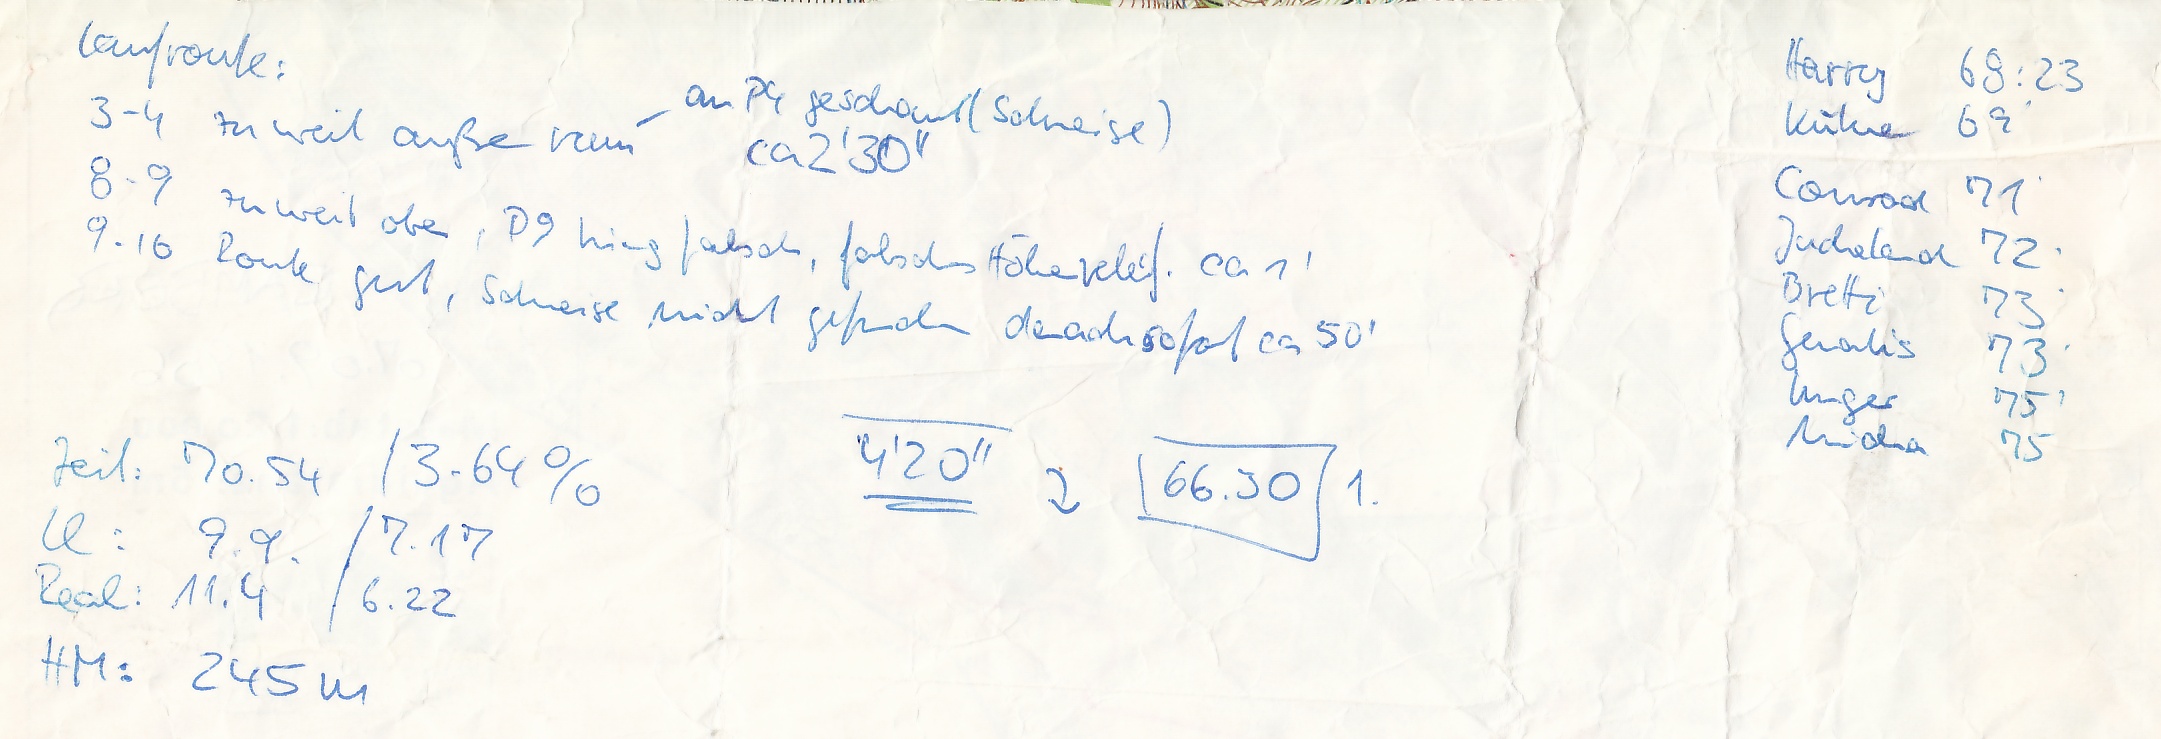 Laufroute:
3-4 zu weit außen rum – an P4 geschaut (Schneise)
ca 2'30"
8-9 zu weit oben, P9 hing falsch, falsches ca 1'
9-10 Route gut, Schneise nicht gefunden danach sofort ca 50'
Zeit: 70.54 / 3-64%
4'20" 66.30 1.
Ll: 9.9. / 7.17
Real: 11.4 / 6.22
HM: 245m
Harry 68:23
Kühne 69'
Conrad 71'
72'
Bretti 73'
73'
Unger 75'
Micha 75